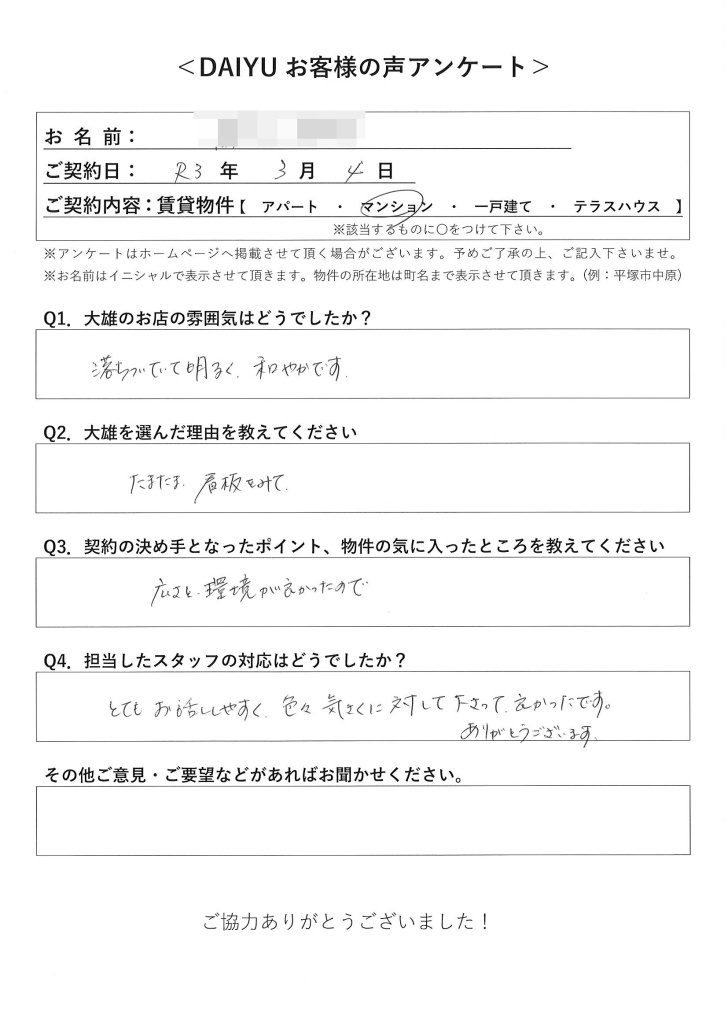 ＜DAIYU お客様の声アンケート＞
お 名 前：
ご契約日： R3 年 3 月 4 日
ご契約内容：賃貸物件【 アパート ・ マンション ・ 一戸建て ・ テラスハウス 】
※該当するものに〇をつけて下さい。
※アンケートはホームページへ掲載させて頂く場合がございます。予めご了承の上、ご記入下さいませ。
※お名前はイニシャルで表示させて頂きます。物件の所在地は町名まで表示させて頂きます。（例：平塚市中原）
Q1．大雄のお店の雰囲気はどうでしたか？
落ちついていて明るく、和やかです。
Q2．大雄を選んだ理由を教えてください
たまたま、看板をみて、
Q3．契約の決め手となったポイント、物件の気に入ったところを教えてください
広さと、環境が良かったので
Q4．担当したスタッフの対応はどうでしたか？
とても お話ししやすく、色々 気さくに 対して下さって、良かったです。
ありがとうございます。
その他ご意見・ご要望などがあればお聞かせください。
ご協力ありがとうございました！